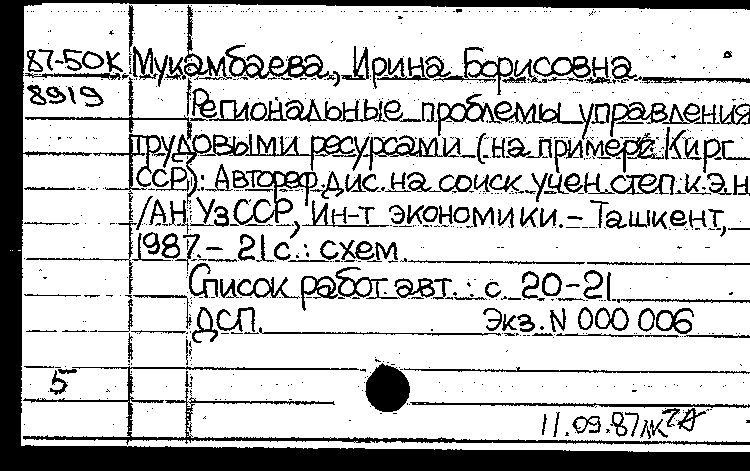 87-50К Мукамбаева, Ирина Борисовна
8919 Региональные проблемы управления
трудовыми ресурсами (на примере Кирг
ССР): Автореф. дис. на соиск. учен. степ. к. э. н
/АН УзССР, Ин-т экономики. – Ташкент,
1987. – 21 с.: схем.
Список работ авт.: с. 20-21
ДСП. Экз. N 000 006
5
11.09.87